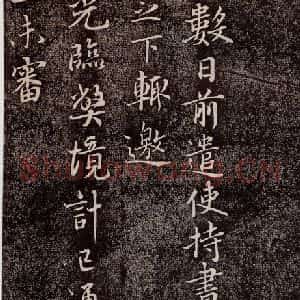 數日前遣使持書
之下輒邀
光臨弊境計已
未審